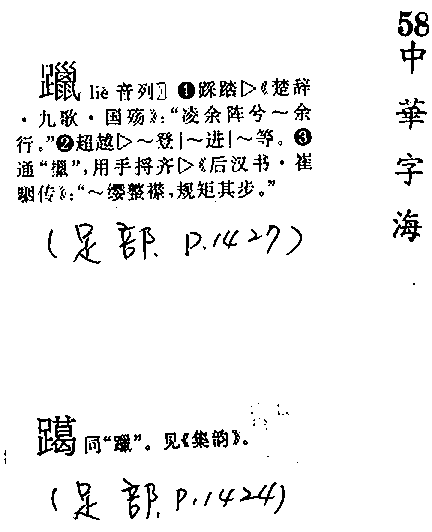 58
中華字海
躐 liè 音列〗❶踩踏▷《楚辞
·九歌·国殇》:“凌余阵兮～余
行。”❷超越▷～登|～进|～等。❸
通“擸”,用手捋齐▷《后汉书·崔
骃传》:“～缨整襟,规矩其步。”
(足部. P.1427)
同“躐”。见《集韵》。
(足部. P.1424)